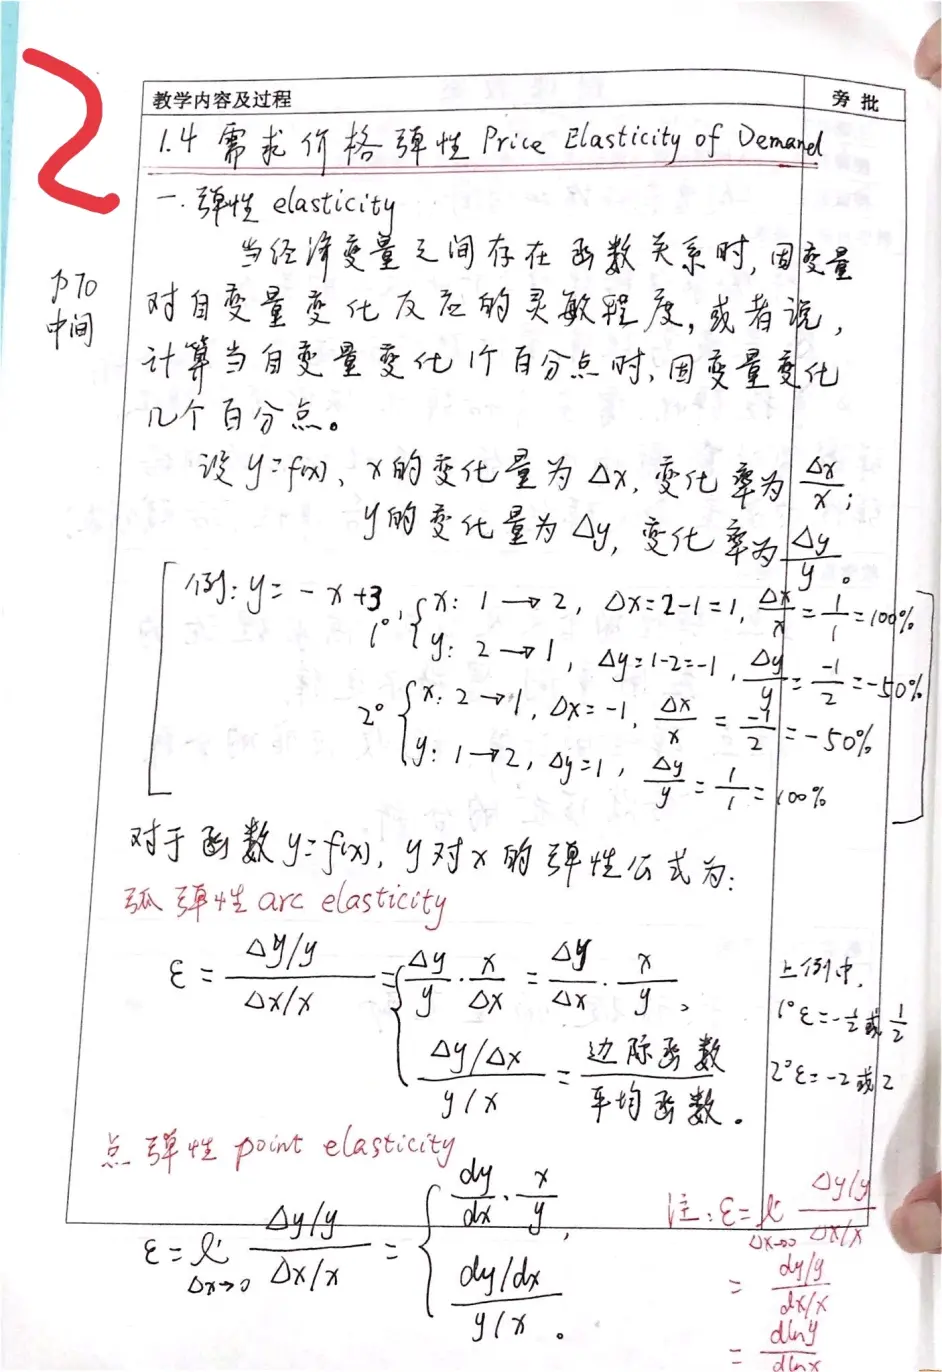 2
教学内容及过程 旁批
1.4 需求价格弹性 Price Elasticity of Demand
一.弹性 elasticity
当经济变量之间存在函数关系时,因变量
p70
中间
对自变量变化反应的灵敏程度,或者说,
计算当自变量变化1个百分点时,因变量变化
几个百分点。
设 y=f(x), x的变化量为 Δx, 变化率为 Δx/x;
y的变化量为 Δy, 变化率为 Δy/y。
例: y = -x+3,
1° { x: 1→2, Δx=2-1=1, Δx/x = 1/1 = 100%
y: 2→1, Δy=1-2=-1, Δy/y = -1/2 = -50%
2° { x: 2→1, Δx=-1, Δx/x = -1/2 = -50%
y: 1→2, Δy=1, Δy/y = 1/1 = 100%
对于函数 y=f(x), y对x的弹性公式为:
弧弹性 arc elasticity
ε = (Δy/y)/(Δx/x) = { Δy/y · x/Δx = Δy/Δx · x/y,
(Δy/Δx)/(y/x) = 边际函数/平均函数。
上例中,
1° ε=-1/2 或 1/2
2° ε=-2 或 2
点弹性 point elasticity
ε = li Δx→0 (Δy/y)/(Δx/x) = { dy/dx · x/y,
(dy/dx)/(y/x)。
注: ε= li Δx→0 (Δy/y)/(Δx/x)
= (dy/y)/(dx/x)
= dlny/dlnx